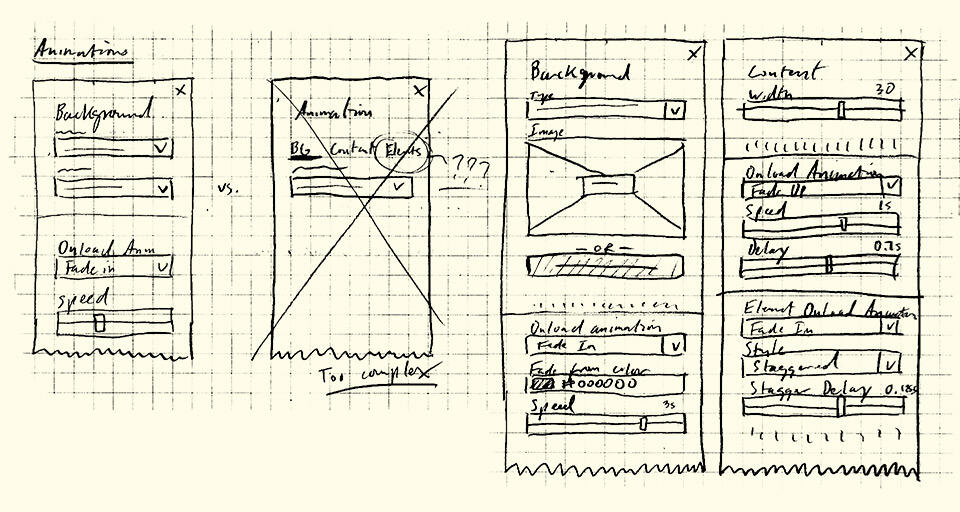 Animations
X
Background
Onload Anim
Fade in
Speed
vs.
X
Animation
BG Content Elements
???
Too complex
X
Background
Type
Image
- OR -
Onload animation
Fade In
Fade from color
#000000
Speed 3s
X
Content
Width 30
Onload Animation
Fade Up
Speed 1s
Delay
Element Onload Animation
Fade In
Style
Staggered
Stagger Delay